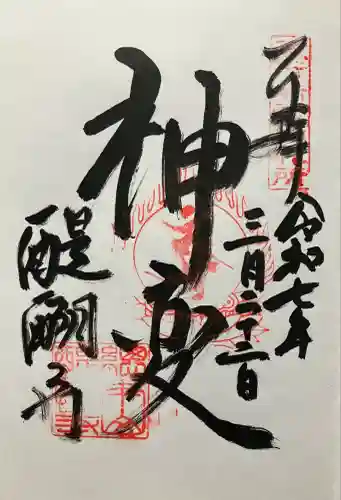 奉拝
令和七年
三月二十三日
神変
醍醐寺